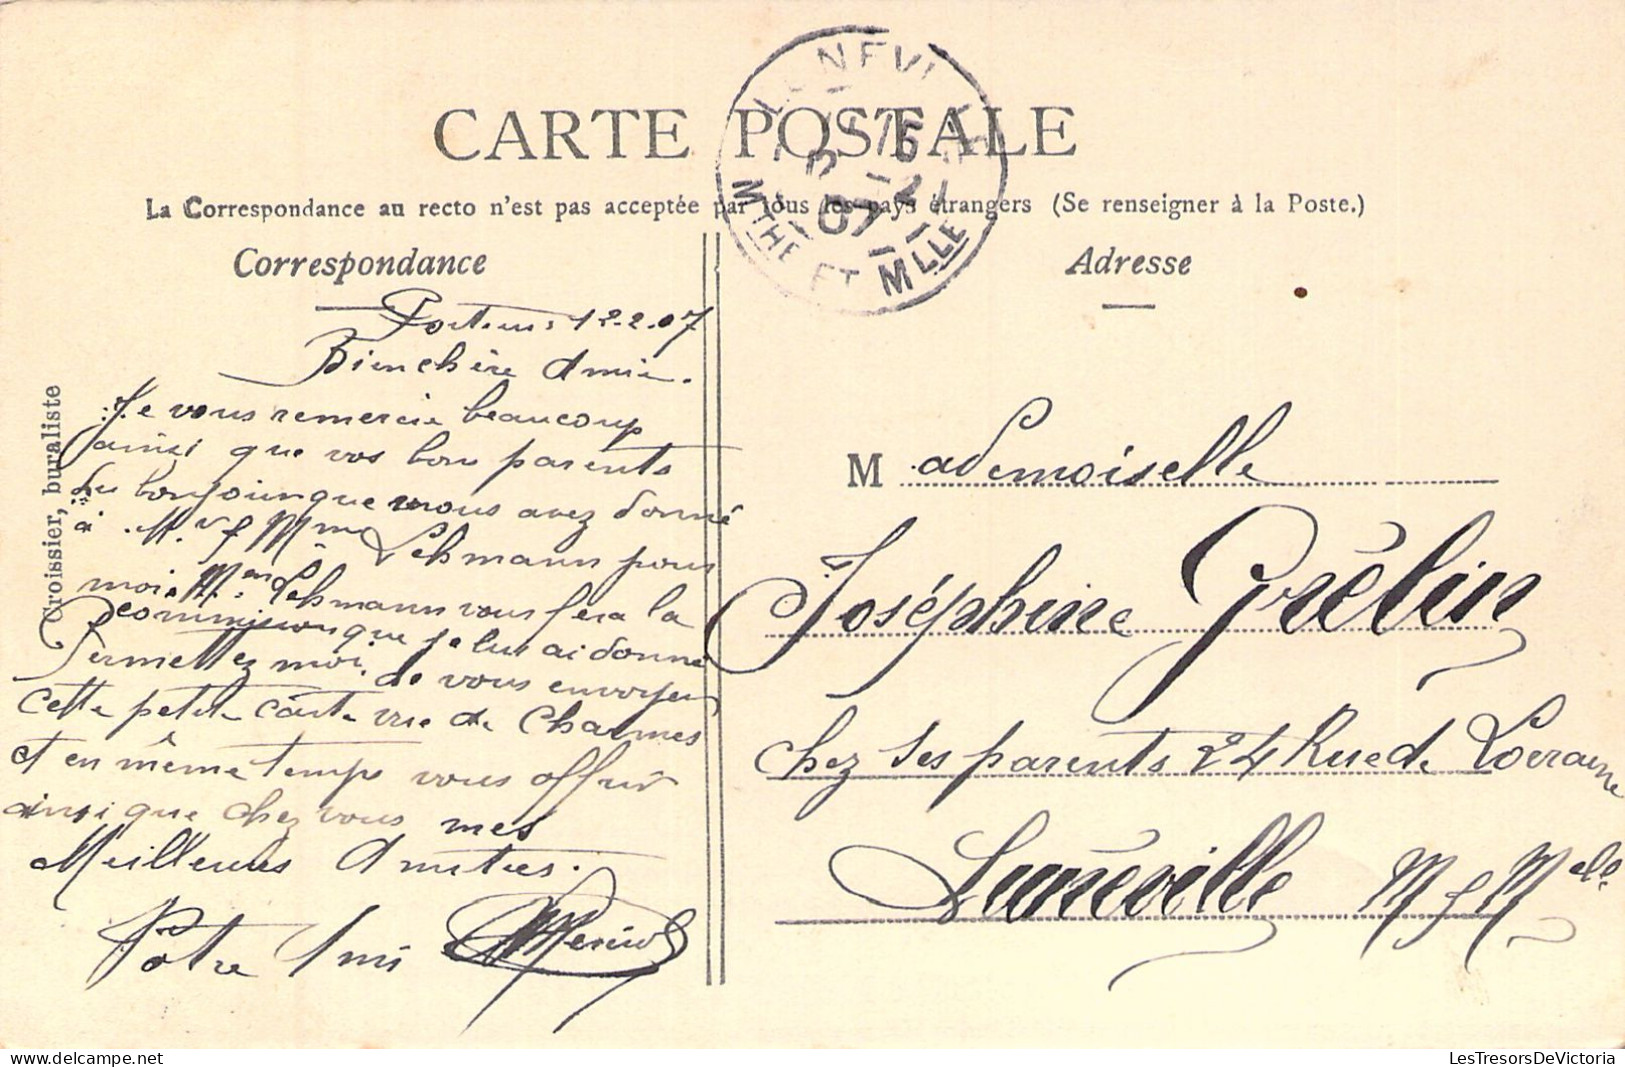 CARTE POSTALE
La Correspondance au recto n'est pas acceptée par tous les pays étrangers (Se renseigner à la Poste.)
Correspondance
12.2.07
Bien chère Amie.
Je vous remercie beaucoup
ainsi que vos bons parents
du bonjour que vous avez donné
à M. & Mme Lehmann pour
moi. M. Lehmann vous fera la
commission que je lui ai donné
Permettez moi de vous envoyer
cette petite carte vue de Charmes
et en même temps vous offrir
ainsi que chez vous mes
Meilleures Amitiés.
Votre Ami
Croissier, buraliste
LUNEVILLE
MTHE ET MLLE
Adresse
Mademoiselle
Joséphine Grélin
chez ses parents 24 Rue de Lorraine
Lunéville M & Melle
LesTresorsDeVictoria
delcampe.net